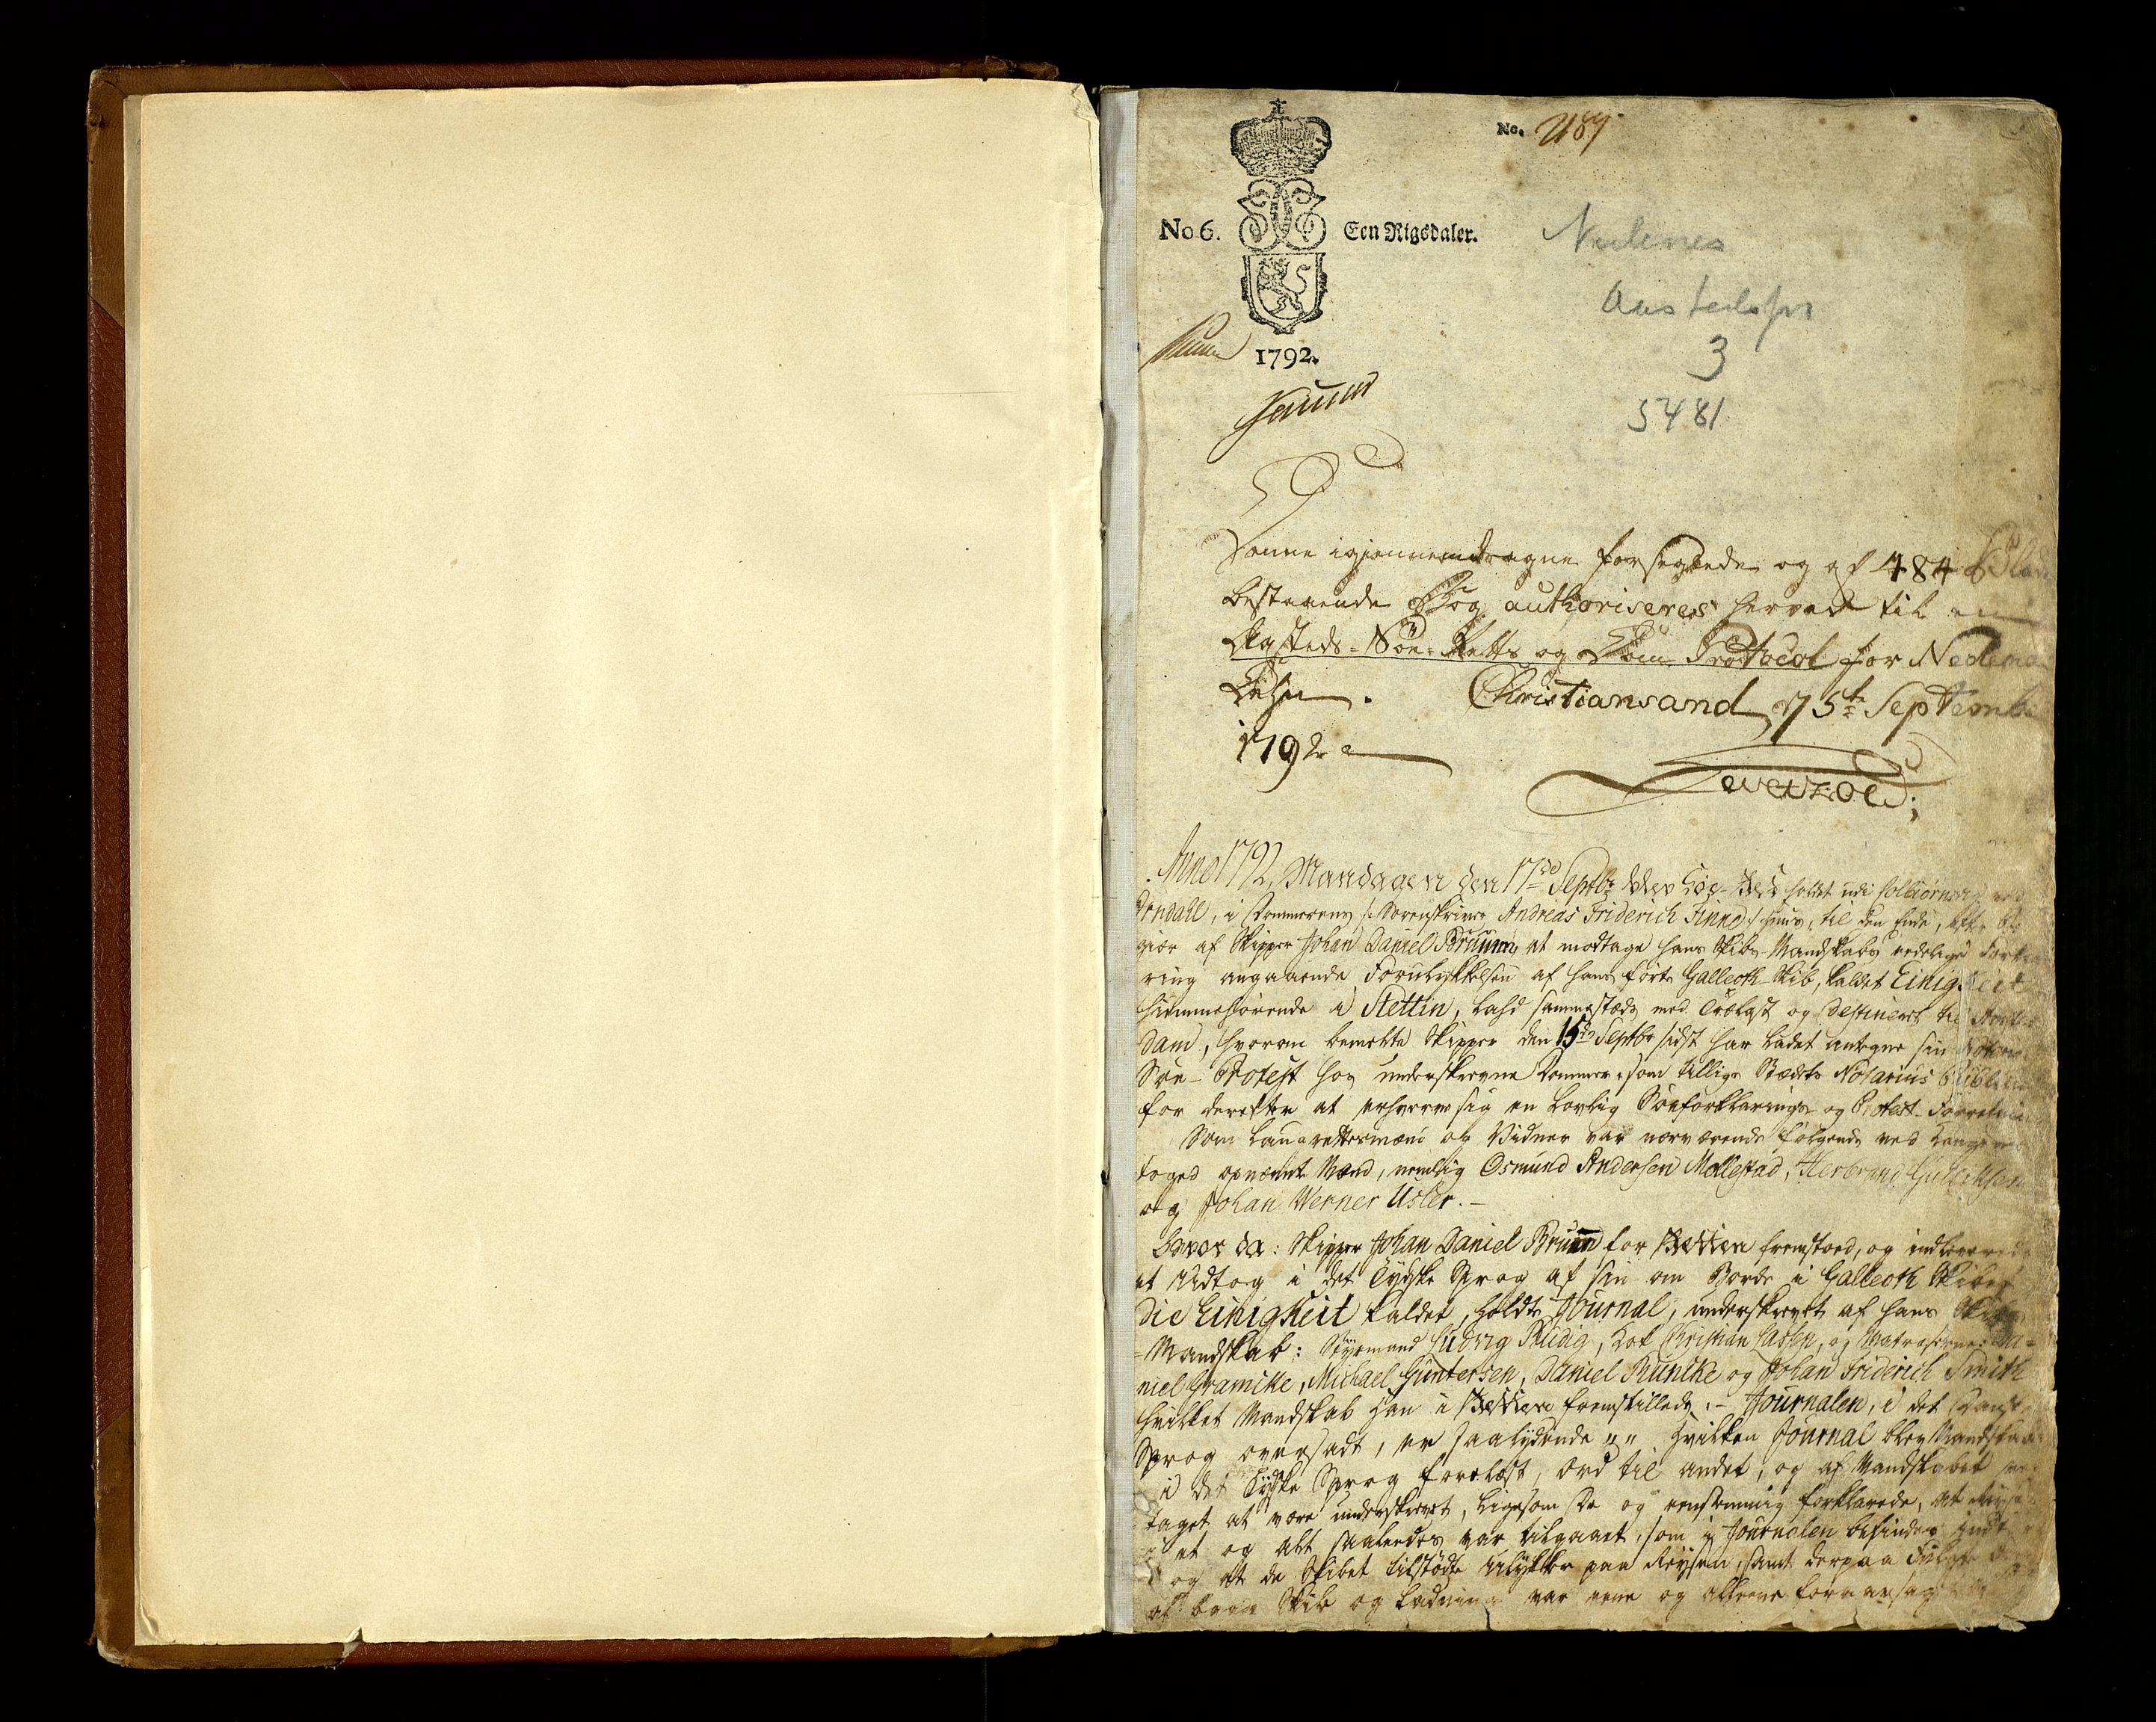 No. 2189
No 6. Een Rigsdaler.
Nedenes
Aastedspr
3
5481
1792.
Denne igiennemdragne forseglede og af 484 Blade
bestaaende Bog authoriseres herved til en
Aasteds- Söe- Retts og Dom Protocol for Nedenes
Lehn. Christiansand d 15te September
1792
Anno 1792, Mandagen den 17de Septbr blev Söe-Rett holdt udi Colbiörns ved
Arendall, i Dommerens /: Sorenskriver Andreas Friderich Finne :/ Huus, til den Ende, efter Be-
giær af Skipper Johan Daniel Bruun, at modtage hans Skibs Mandskabs eedelige Forkla-
ring angaaende Forulykkelsen af hans førte Galleoth-Skib, kaldet Einigkeit
hiemmehörende i Stettin, ladt sammestæds med Trælast og destineret til Amster-
dam, hvorom bemelte Skipper den 15de Septbr sidst har ladet antegne sin
Söe-Protest hos underskrevne Dommer, som tillige Stædets Notarius Publicus
for derefter at erhverve sig en lovlig Söeforklarings- og Protest-Forretning
Som Laugrettesmænd og Vidner var nærværende følgende ved Lensmand
foged opnævnte Mænd, nemlig Osmund Andersen Mollestad, Herbrand Gullichsen
og Johan Werner Usler.-
Hvor da: Skipper Johan Daniel Bruun for Retten fremstoed, og indleverede
et Udtog i det Tydske Sprog af sin om Borde i Galleoth Skibet
Die Einigkeit kaldet, holdte Journal, underskrevet af hans Skibs
Mandskab: Styrmand Ludvig Rudig, Kok Christian Sasse, og Matroserne: Da-
niel Gramitke, Michael Guntersen, Daniel Runtke og Johan Friderich Smith
hvilket Mandskab han i Retten fremstillede.- Journalen, i det Danske
Sprog oversadt, er saalydende "," Hvilken Journal blev Mandskabet
i det Tydske Sprog forelæst, Ord til andet, og af Mandskabet ved-
taget at være underskrevet, ligesom De og eenstemmig forklarede, at
et og alt saaledes var tilgaaet, som i Journalen befindes indført
og at de Skibet tilstødte Ulykker paa Reysen, samt derpaa fulgte
af baade Skib og Ladning var eene og alleene foraarsaget